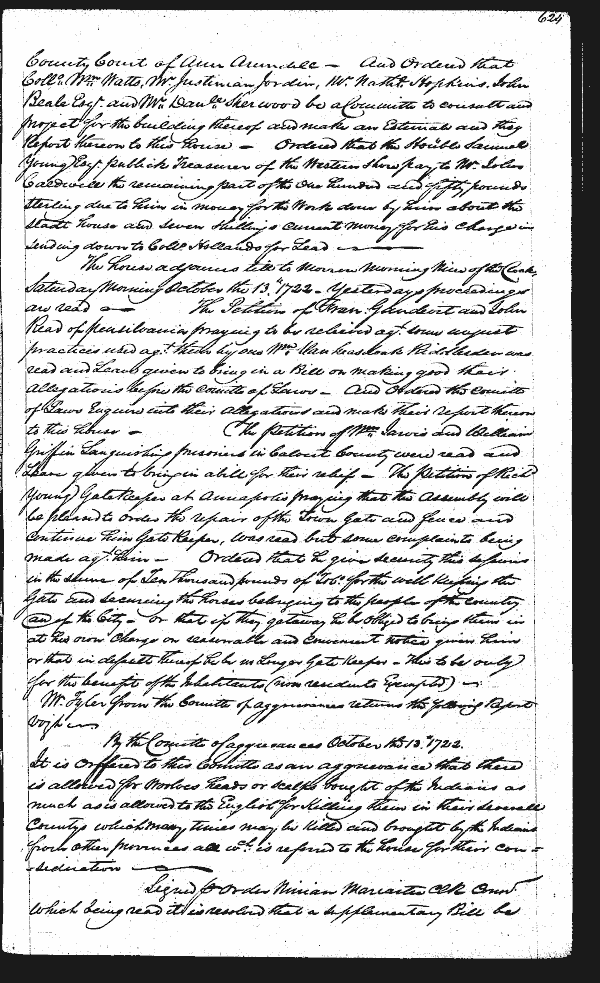 624
County Court of Ann Arundell — And Ordered that
Collo. Wm. Watts, Mr. Justinian Jordin, Mr. Nathl. Hopkins. John
Beale Esqr. and Mr. Danll. Sherwood be a Committe to consult and
project for the building thereof and make an Estimate and they
Report thereon to this House — Ordered that the Honble Samuel
Young Esqr. publick Treasurer of the Western Shore pay to Mr. John
Caldwell the remaining part of the One hundred and fifty pounds
sterling due to him in money for the Work done by him about the
stadt house and seven shillings current money for his charge in
sending down to Collo. Hollands for Lead
The house adjourns till to Morrow Morning Nine of the Clock.
Saturday Morning October the 13th. 1722. Yesterdays proceedings
are read — The Petition of Fran. and John
Read of pensilvania praying to be relieved agt. some unjust
practices used agt. them by one Wm. was
read and Leave given to bring in a Bill on making good their
Allegations before the Comitte of Laws — And Ordered the Comitte
of Laws Enquire into their Allegations and make their report thereon
to this house — The Petition of Wm. Jarvis and William
Griffin Languishing prisoners in Calvert County were read and
Leave given to bring in a bill for their relief — The Petition of Richd.
Young Gate Keeper at Annapolis praying that the Assembly will
be pleased to order the repair of the Town Gate and fence and
continue him Gate Keeper, was read but some complaints being
made agt. him — Ordered that he give security this sessions
in the summ of Ten Thousand pounds of Tobo. for the well keeping the
Gate and securing the horses belonging to the people of the country
and of the City — or that if they getaway he be Obliged to bring them in
at his own charge on reasonable and convenient notice given him
or that in default thereof he be no longer Gate Keeper — this to be only
for the benefit of the Inhabitants (non residents Excepted) —
Mr. Tyler from the Comitte of aggrievances returns the following Report
vizt.
By the Comitte of aggrievances October the 13th. 1722.
It is offered to this Comitte as an aggrievance that there
is allowed for Wolves heads or scalps bought of the Indians as
much as is allowed to the English for killing them in their severall
Countys which many times may be killed and brought by the Indians
from other provinces all wch. is referred to the house for their con=
=sideration
Signed p Order Ninian Mariarte Clk Comr.
Which being read it is resolved that a supplementary Bill be